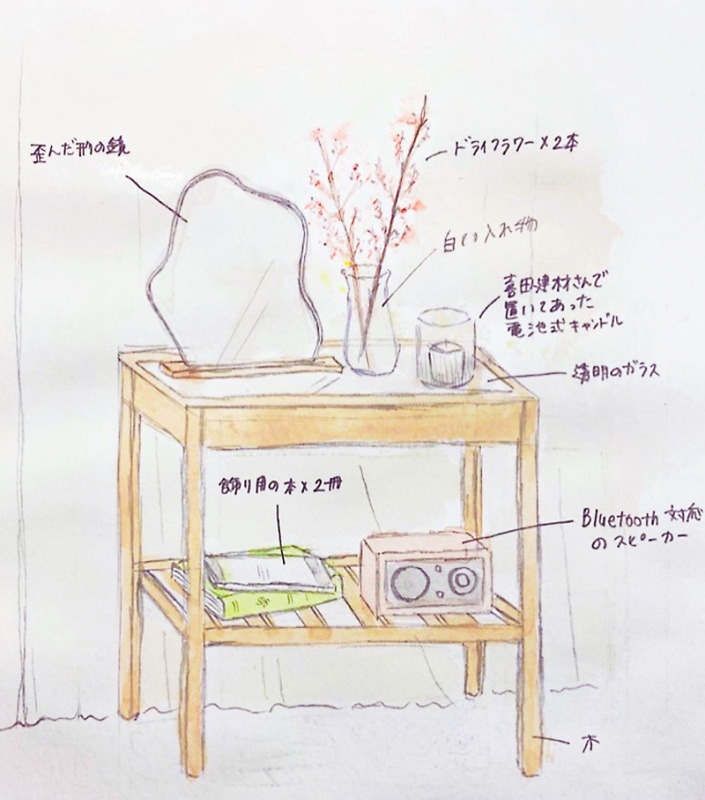 歪んだ形の鏡
ドライフラワー×2本
白い入れ物
喜田建材さんで
置いてあった
電池式キャンドル
透明のガラス
飾り用の本×2冊
Bluetooth対応
のスピーカー
木